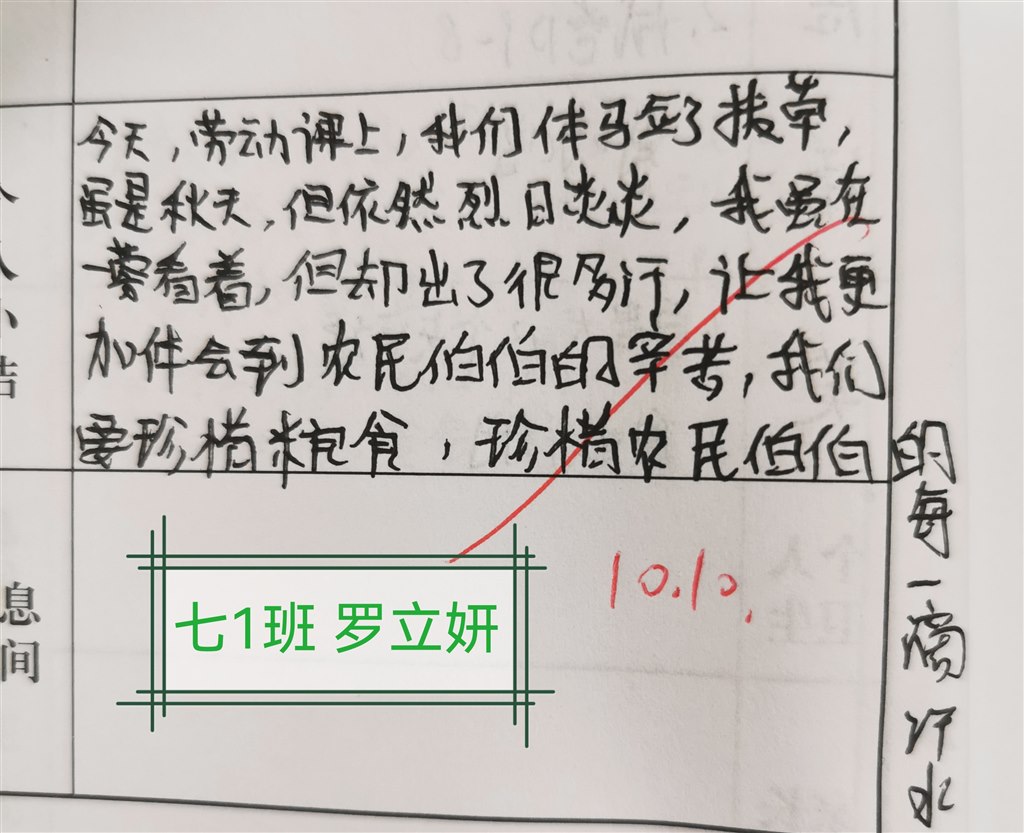 今天，劳动课上，我们体马金了拔草，
虽是秋天，但依然烈日炎炎，我虽在
一旁看着，但却出了很多汗，让我更
加体会到农民伯伯的辛苦，我们
要珍惜粮食，珍惜农民伯伯的每一滴汗水
10.10.
七1班 罗立妍
息
间
结